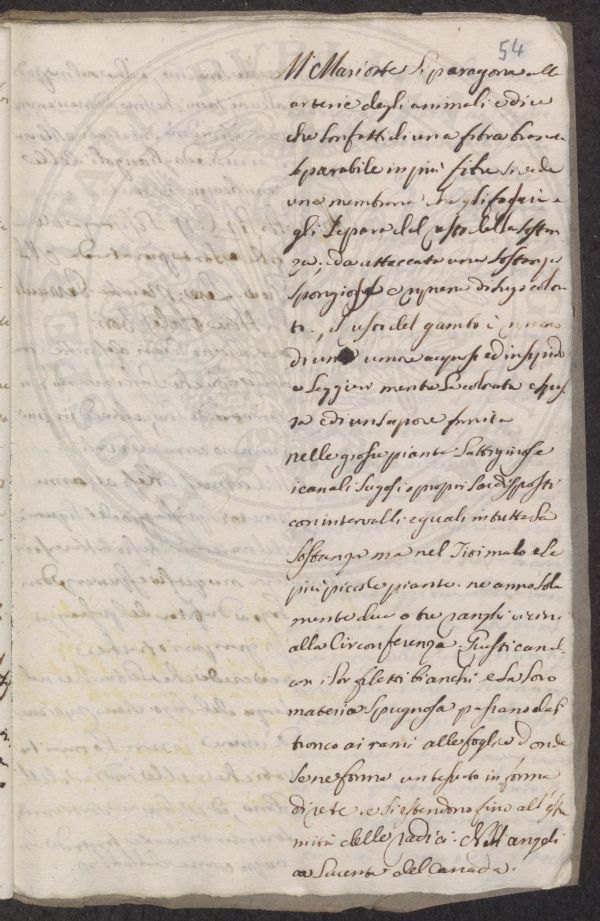 54
Mr Mariotte li paragona alle
arterie degli animali e dice
che son fatti di una fibra bian
separabile in più fibre si vede
una membrana che gli
gli separa del resto della sostan
za, da attaccata una sostanza
spongiosa e ripiena di sugo colora
to, il del gambo è ripieno
di un umore acquoso ed insipido
e leggier mente la colorata e spes
sa e di un sapore
nelle grosse piante lattiginose
i canali sugosi e propri son disposti
con intervalli eguali in tutta la
sostanza ma nel Titimalo e le
più piccole piante ne anno sola
mente due o tre ranghi vicini
alla Circonferenza. Questi canal
con i lor filetti bianchi e la loro
materia spugnosa passano dal
tronco ai rami alle foglie d'onde
se ne forma un tesuto in forma
di rete e si estendono fino all'estre
mità delle radici. Nell'angeli
ca lucente del Canada.